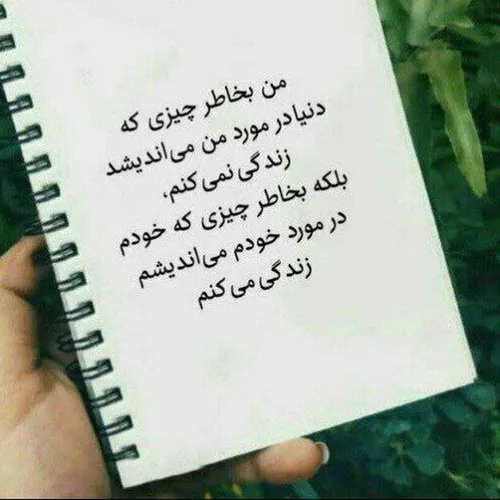 من بخاطر چیزی که
دنیا در مورد من می‌اندیشد
زندگی نمی‌کنم،
بلکه بخاطر چیزی که خودم
در مورد خودم می‌اندیشم
زندگی می‌کنم